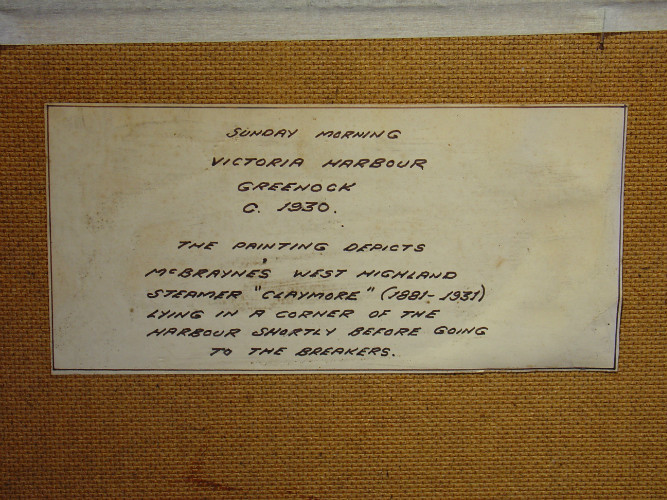 SUNDAY MORNING
VICTORIA HARBOUR
GREENOCK
C. 1930.
THE PAINTING DEPICTS
McBRAYNE'S WEST HIGHLAND
STEAMER "CLAYMORE" (1881-1931)
LYING IN A CORNER OF THE
HARBOUR SHORTLY BEFORE GOING
TO THE BREAKERS.